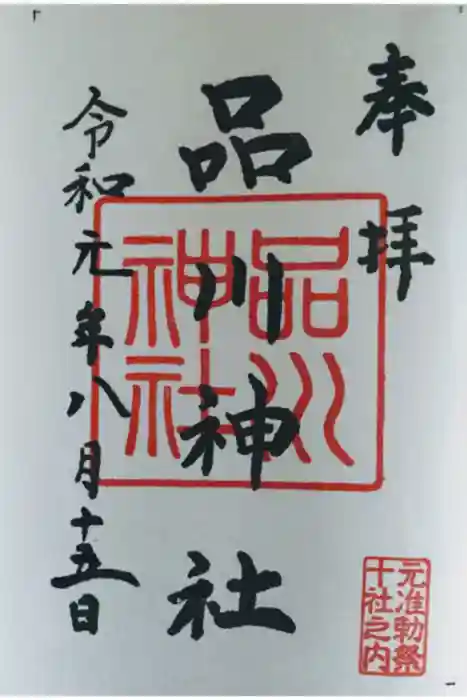 奉拝
品川神社
令和元年八月十五日
品川
神社
元准勅祭
十社之内